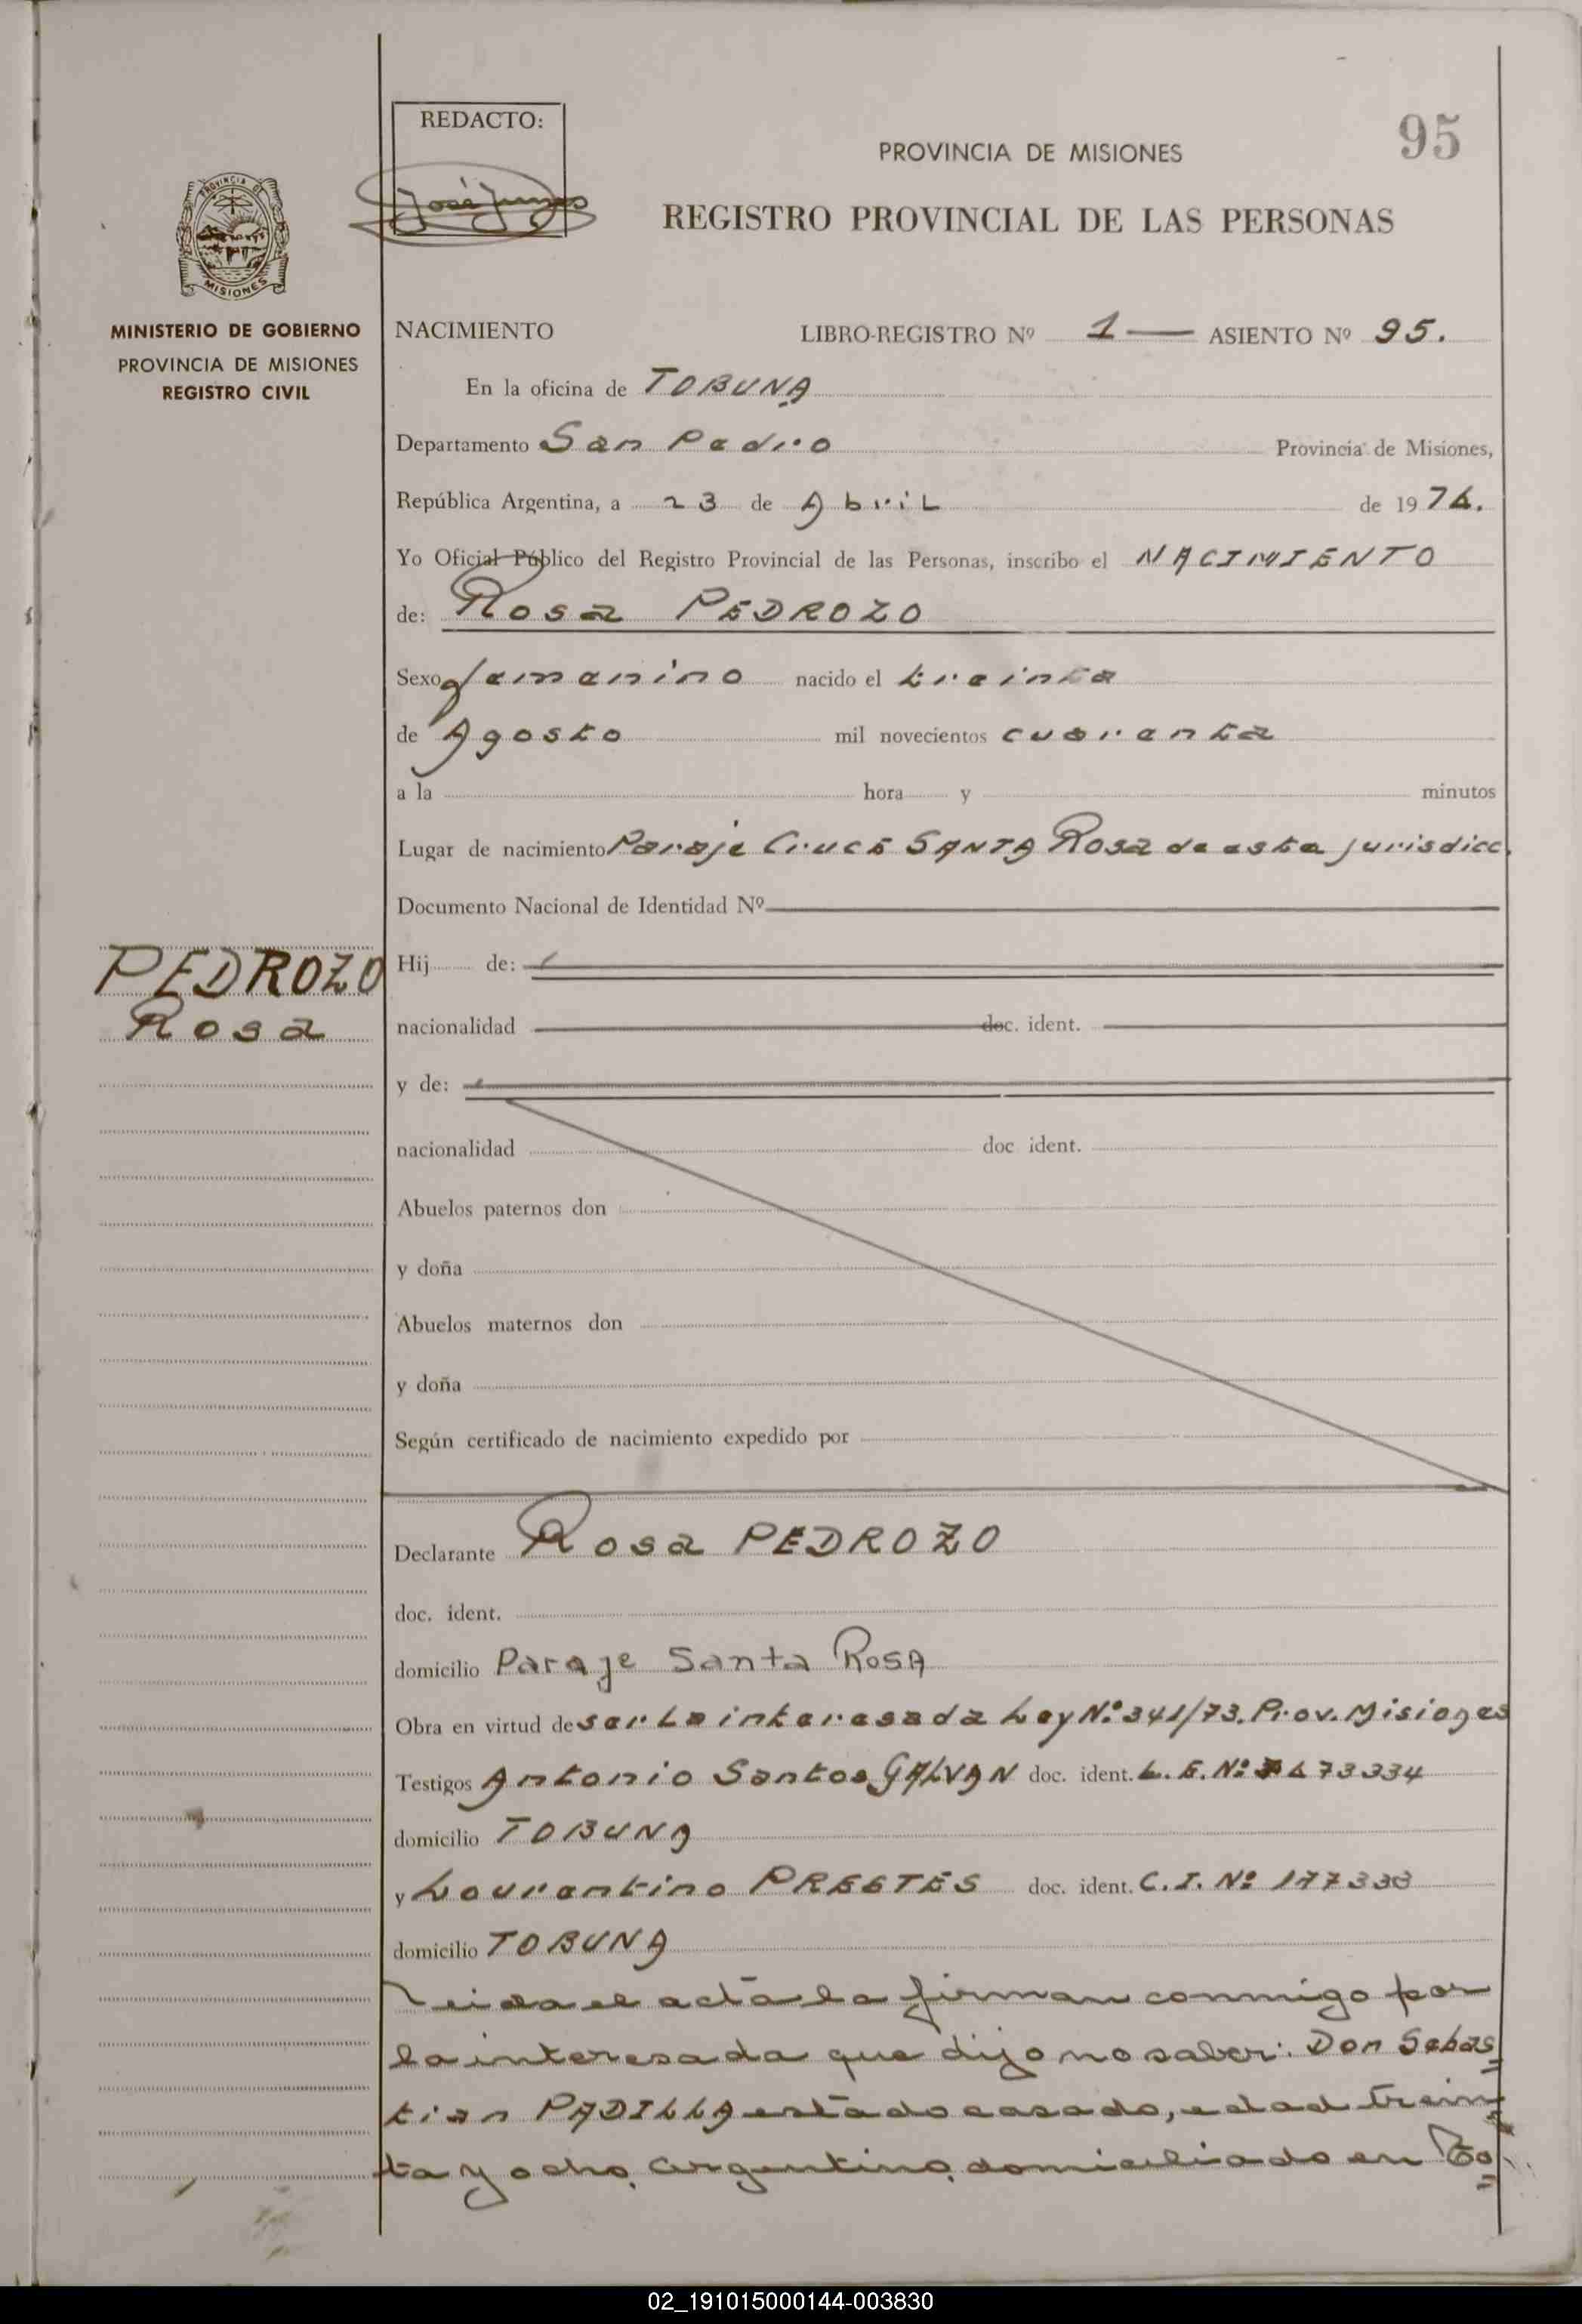 REDACTO:
95
PROVINCIA DE MISIONES
REGISTRO PROVINCIAL DE LAS PERSONAS
PROVINCIA DE
MISIONES
MINISTERIO DE GOBIERNO
PROVINCIA DE MISIONES
REGISTRO CIVIL
NACIMIENTO LIBRO-REGISTRO Nº 1 — ASIENTO Nº 95.
En la oficina de TOBUNA
Departamento San Pedro Provincia de Misiones,
República Argentina, a 23 de Abril de 1974.
Yo Oficial Público del Registro Provincial de las Personas, inscribo el NACIMIENTO
de: Rosa PEDROZO
Sexo femenino nacido el treinta
de Agosto mil novecientos cuarenta
a la hora y minutos
Lugar de nacimiento Paraje Cruce SANTA Rosa de esta jurisdicc.
Documento Nacional de Identidad Nº
PEDROZO
Rosa
Hij de:
nacionalidad doc. ident.
y de:
nacionalidad doc ident.
Abuelos paternos don
y doña
Abuelos maternos don
y doña
Según certificado de nacimiento expedido por
Declarante Rosa PEDROZO
doc. ident.
domicilio Paraje Santa RosA
Obra en virtud de ser la interesada Ley Nº 341/73. Prov. Misiones
Testigos Antonio Santos GALVAN doc. ident. L. E. Nº
domicilio TOBUNA
y Lourentino PRESTES doc. ident. C. I. Nº 177333
domicilio TOBUNA
Leida el acta la firman conmigo por
la interesada que dijo no saber: Don Sebas=
tian PADILLA estado casado, edad trein=
ta y ocho, argentino, domiciliado en To=
02_191015000144-003830